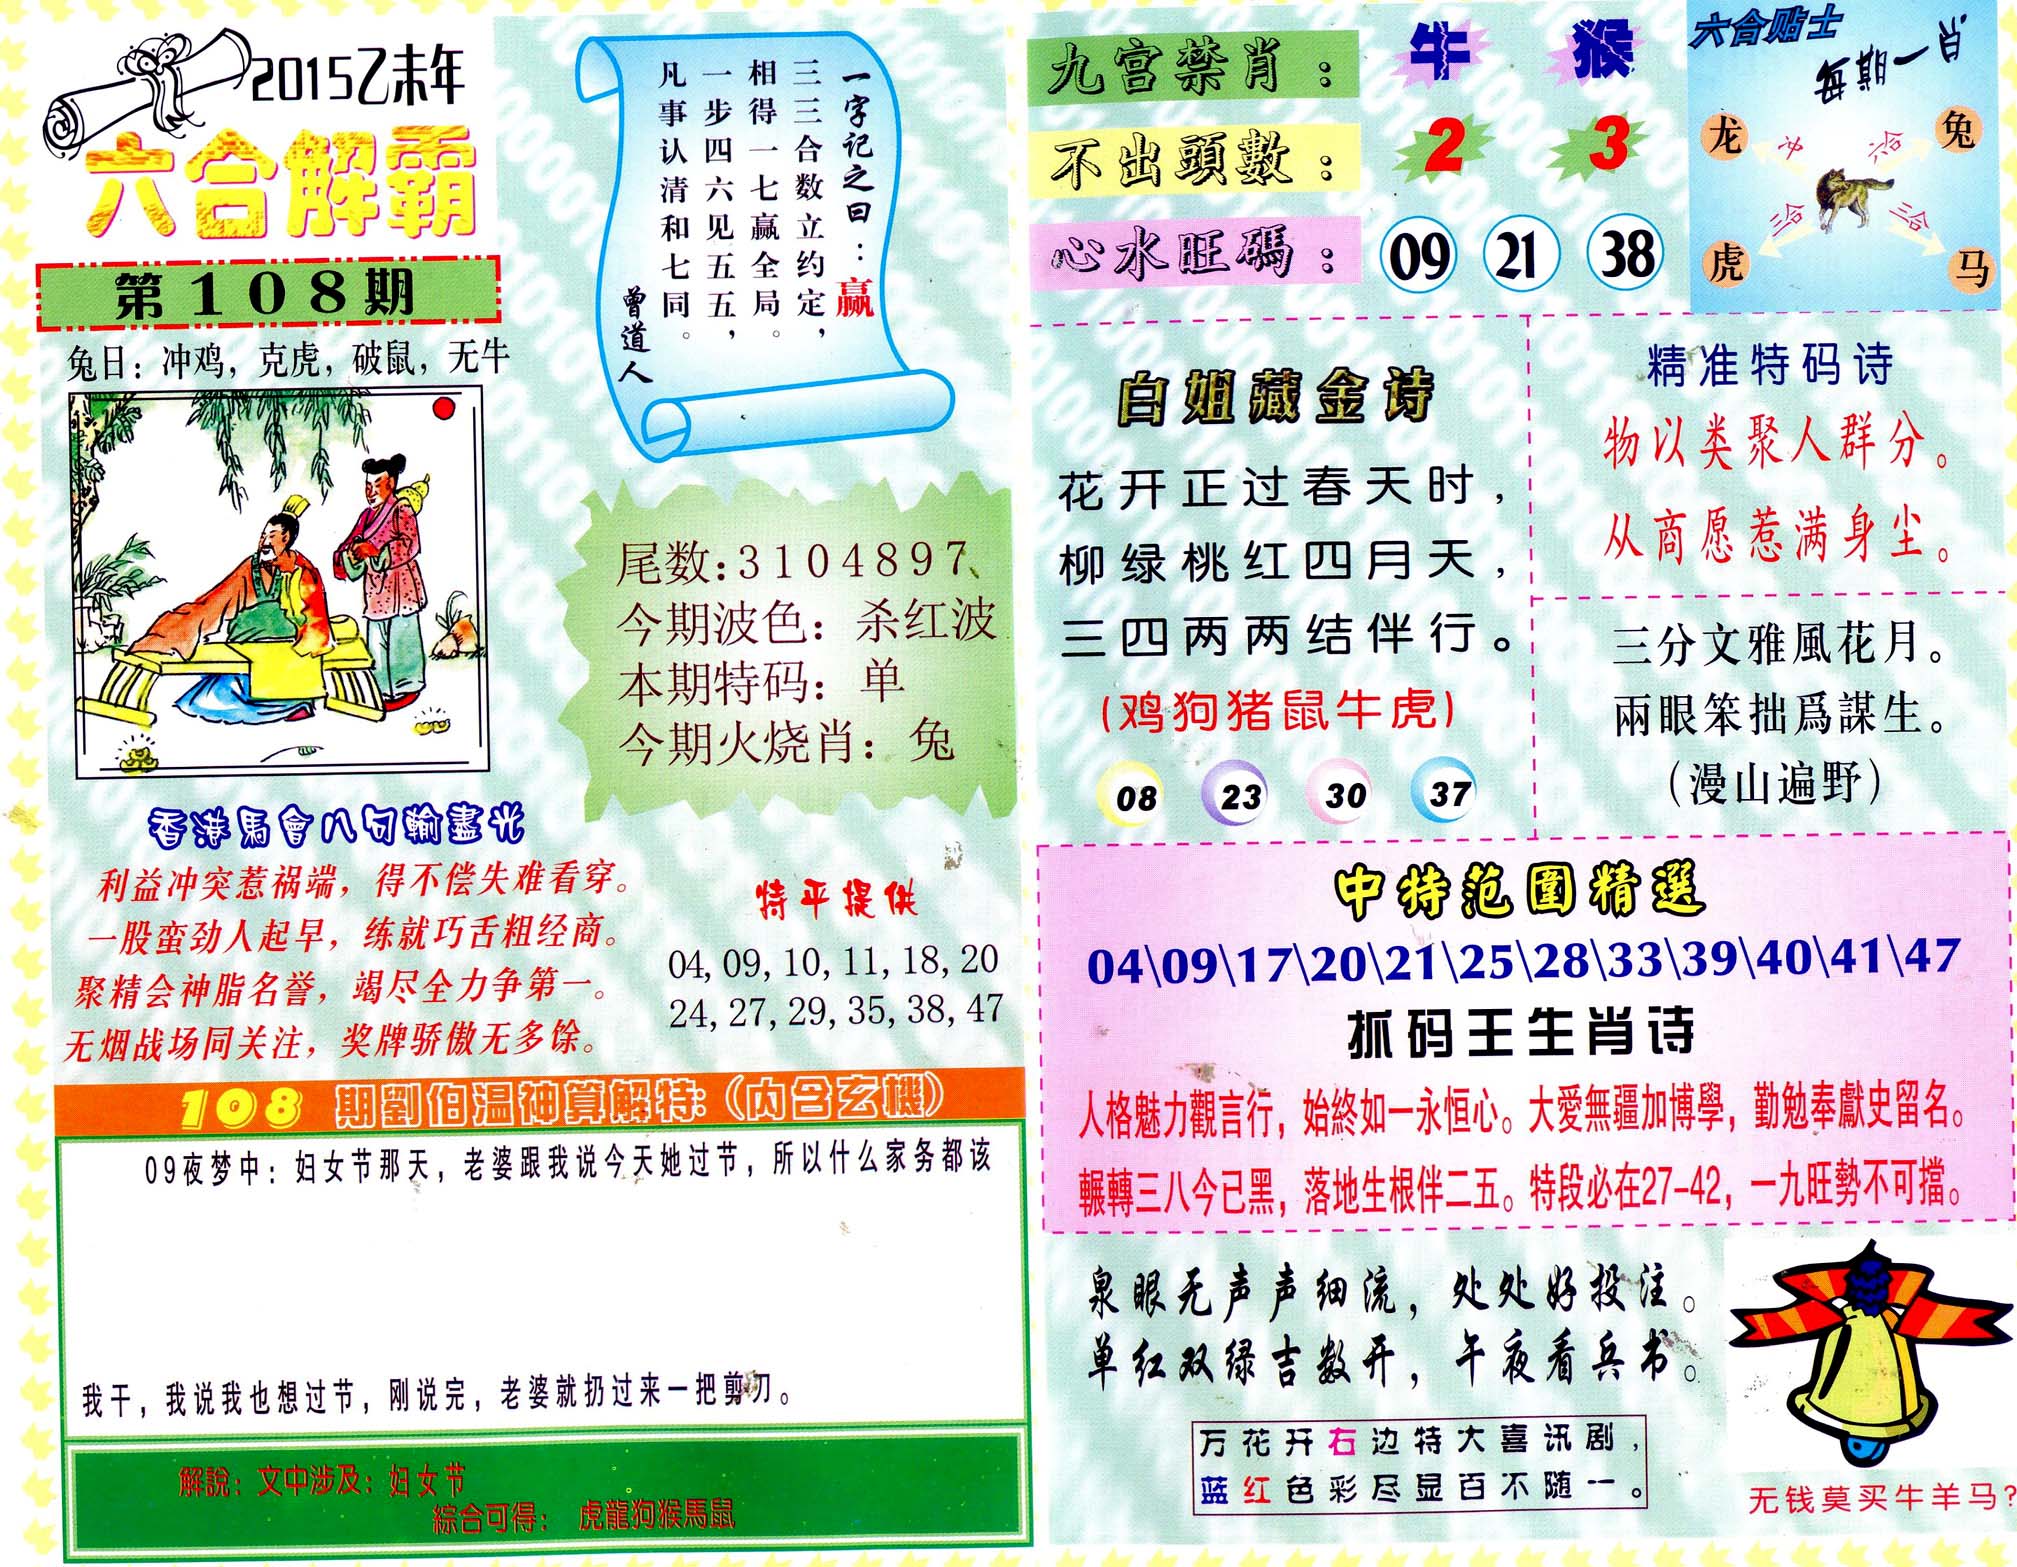 2015乙未年
六合解霸
第108期
兔日：冲鸡，克虎，破鼠，无牛
一字记之曰：赢
三三合数立约定，
相得一七赢全局。
一步四六见五五，
凡事认清和七同。
曾道人
尾数:3104897
今期波色：杀红波
本期特码：单
今期火烧肖：兔
香港馬會八句輸盡光
利益冲突惹祸端，得不偿失难看穿。
一股蛮劲人起早，练就巧舌粗经商。
聚精会神脂名誉，竭尽全力争第一。
无烟战场同关注，奖牌骄傲无多馀。
特平提供
04,09,10,11,18,20
24,27,29,35,38,47
108 期劉伯温神算解特:（内含玄機）
09夜梦中：妇女节那天，老婆跟我说今天她过节，所以什么家务都该
我干，我说我也想过节，刚说完，老婆就扔过来一把剪刀。
解說：文中涉及：妇女节
綜合可得： 虎龍狗猴馬鼠
九宫禁肖： 牛 猴
不出頭數： 2 3
心水旺碼： 09 21 38
六合贴士
每期一肖
龙 冲 六合 兔
虎 三合 三合 马
白姐藏金诗
花开正过春天时，
柳绿桃红四月天，
三四两两结伴行。
(鸡狗猪鼠牛虎)
08 23 30 37
精准特码诗
物以类聚人群分。
从商愿惹满身尘。
三分文雅風花月。
兩眼笨拙爲謀生。
（漫山遍野）
中特范圍精選
04\09\17\20\21\25\28\33\39\40\41\47
抓码王生肖诗
人格魅力觀言行，始終如一永恒心。大愛無疆加博學，勤勉奉獻史留名。
輾轉三八今已黑，落地生根伴二五。特段必在27-42，一九旺勢不可擋。
泉眼无声声细流，处处好投注。
单红双绿吉数开，午夜看兵书。
万花开右边特大喜讯剧，
蓝红色彩尽显百不随一。
无钱莫买牛羊马？